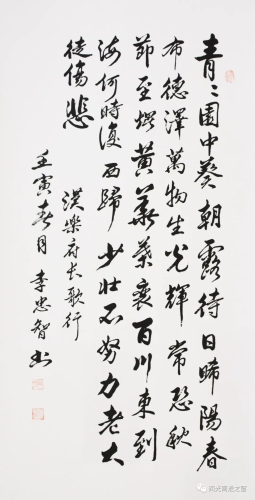 青〻園中葵朝露待日晞陽春
布德澤萬物生光輝常恐秋
節至焜黃華葉衰百川東到
海何時復西歸少壯不努力老大
徒傷悲
漢樂府長歌行
壬寅春月李忠智書